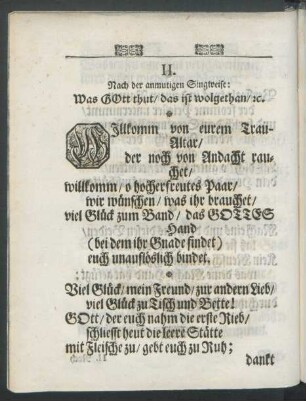 II.
Nach der anmutigen Singweise:
Was GOtt thut/ das ist wolgethan/ ꝛc.
WIllkomm von eurem Trau-
Altar/
der noch von Andacht rau-
chet/
willkomm/ o hocherfreutes Paar/
wir wünschen/ was ihr brauchet/
viel Glück zum Band/ das GOTTES
Hand
(bei dem ihr Gnade findet)
euch unauflöslich bindet.
Viel Glück/ mein Freund/ zur andern Lieb/
viel Glück zu Tisch und Bette!
GOtt/ der euch nahm die erste Rieb/
schliesst heut die leere Stätte
mit Fleische zu/ gebt euch zu Ruh;
dankt